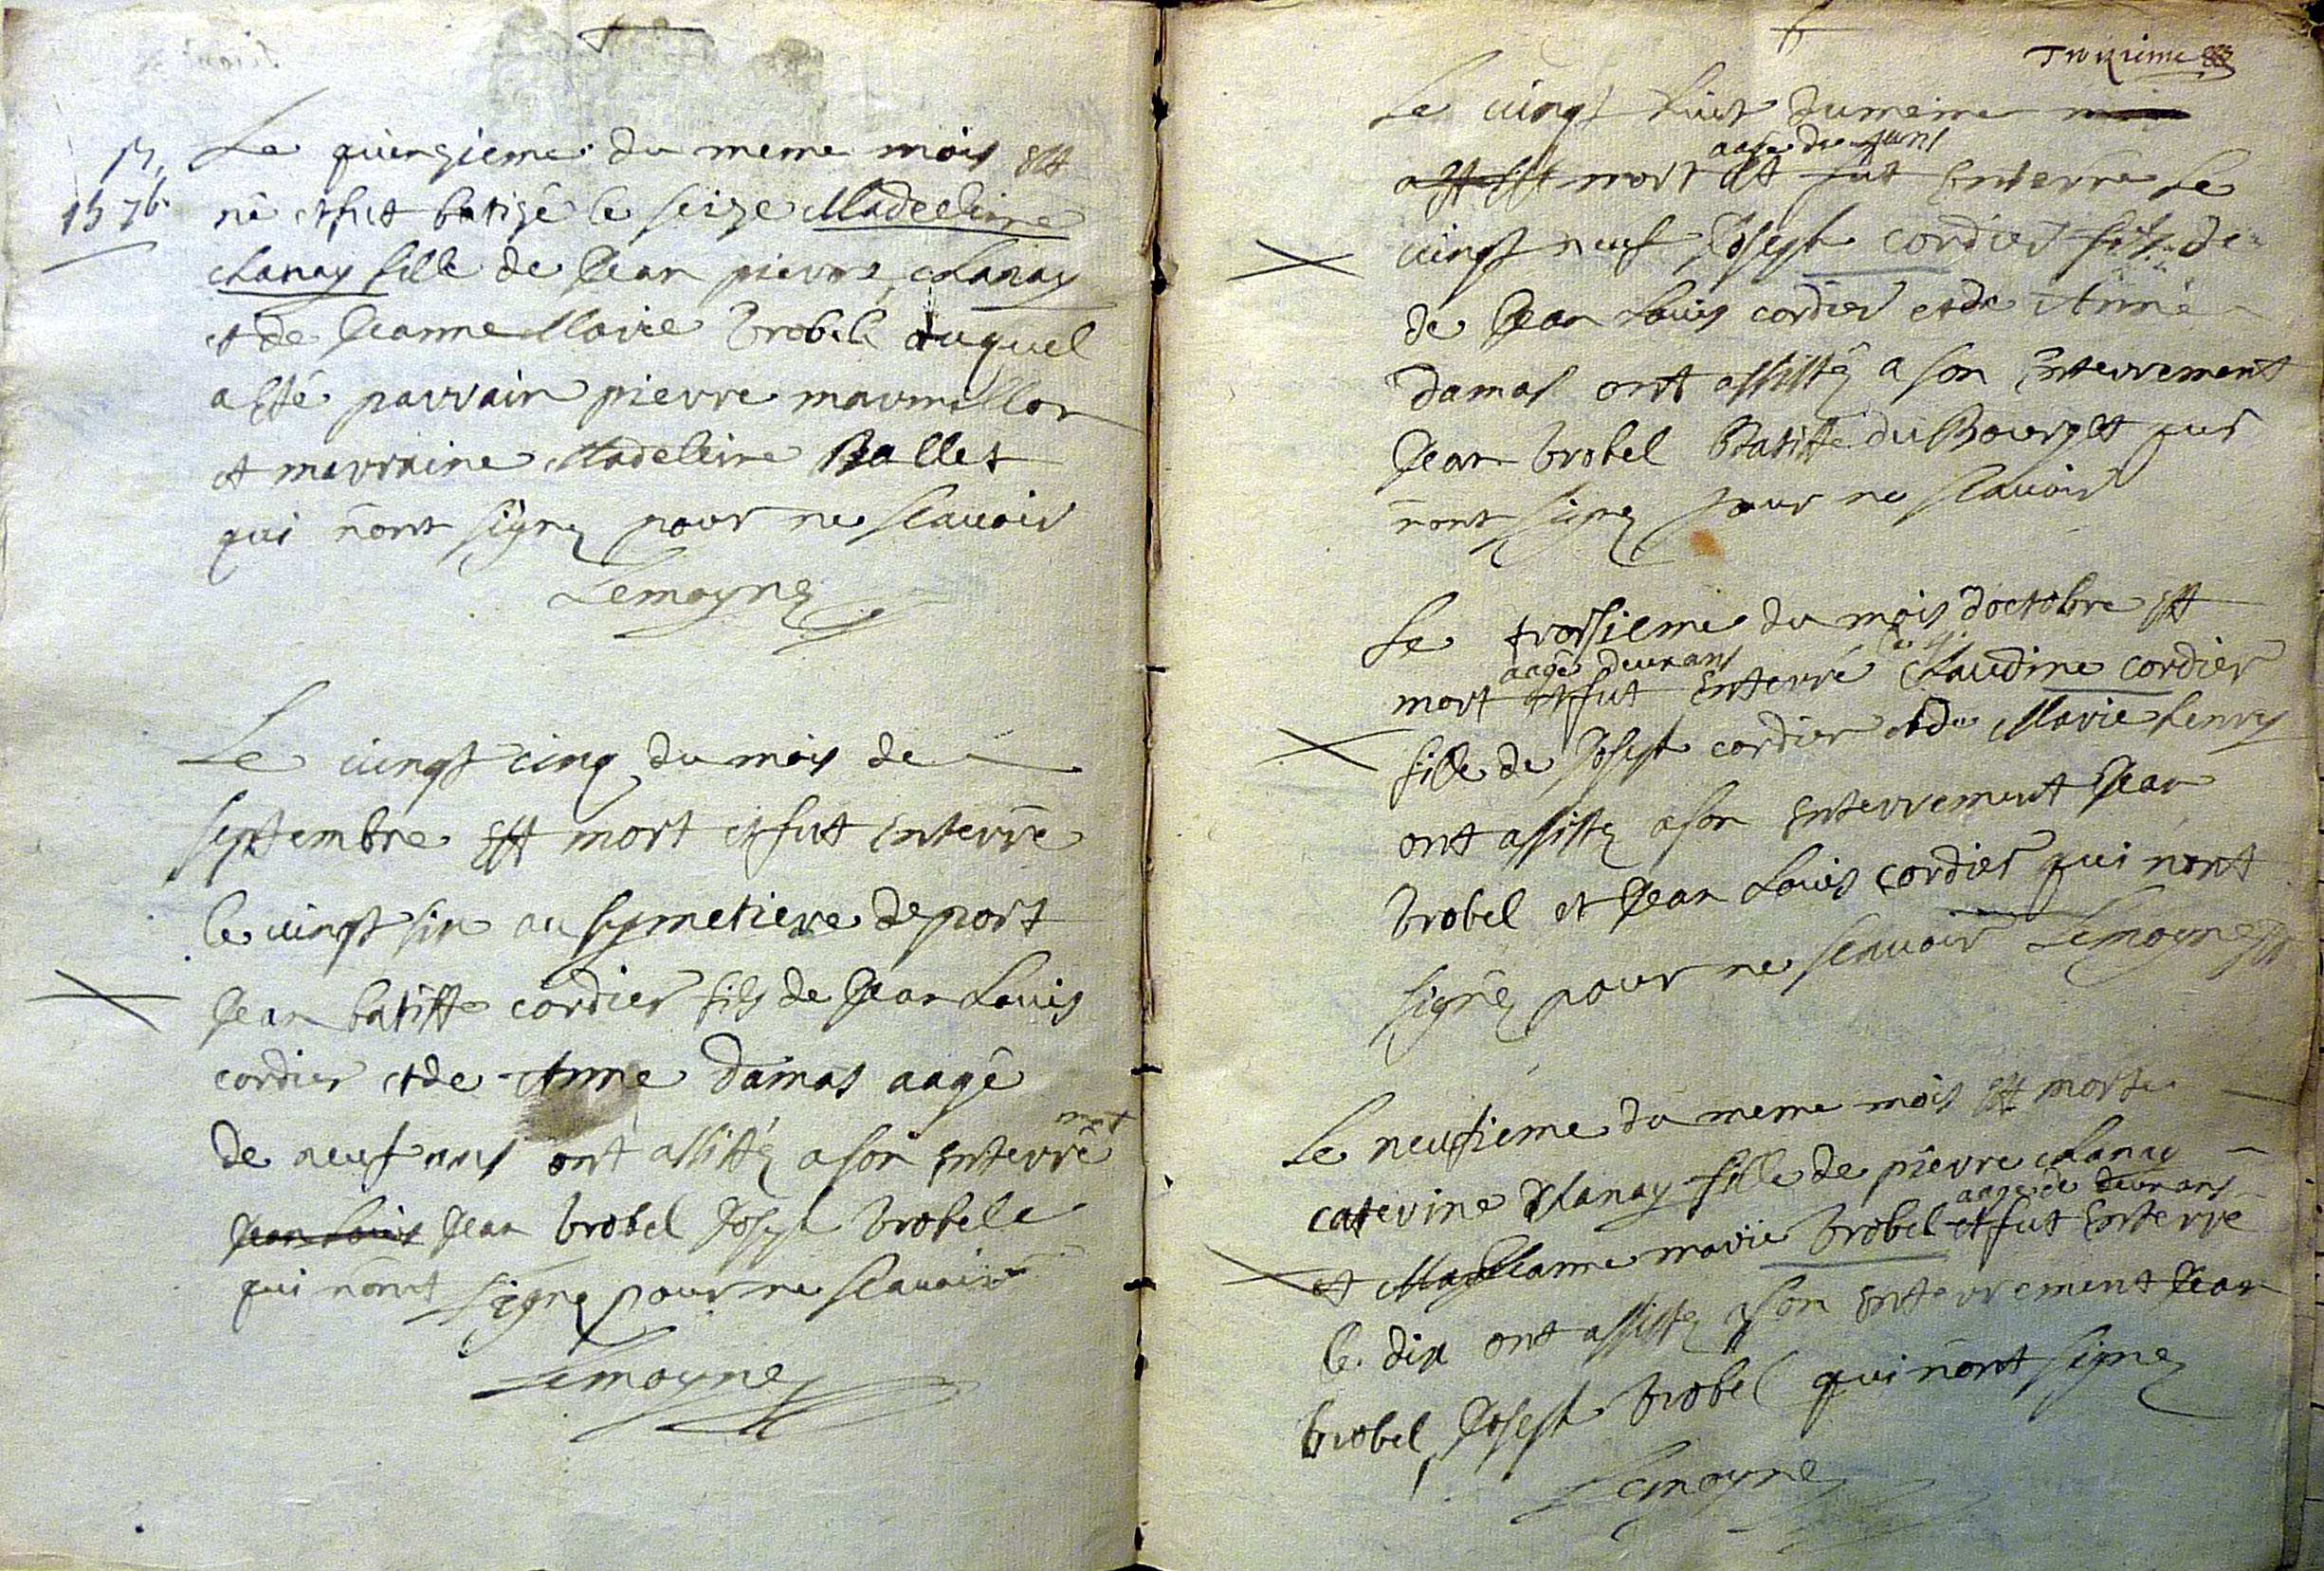 Le quinzieme du meme mois est
né et fut batizé le seize Madeleine
chanay fille de Jean pierre chanay
et de Jeanne Marie brobel auquel
a esté parrain pierre marmillon
et marraine Madeleine Ballet
qui n'ont signez pour ne scauoir
Lemoyne
Le uingt cinq du mois de
septembre est mort et fut enterré
le uingt six au symetiere de port
Jean batiste cordier fils de Jean Louis
cordier et de Anne damas aagé
de neuf ans ont assistéz a son enterrement
Jean Louis Jean brobel Joseph brobele
qui n'ont signez pour ne scauoir
Lemoyne
Troizieme
Le uingt huit du meme mois
aagé de ans
est mort et fut enterré le
uingt neuf Joseph cordier fils de
de Jean Louis cordier et de Anne
damas ont assistéz a son enterrement
Jean brobel Batiste du Bourget qui
n'ont signez pour ne scauoir
Le troisieme du mois d'octobre est
aagé deux ans
mort et fut enterré claudine cordier
fille de Joseph cordier et de Marie henry
ont assistez a son enterrement Jean
brobel et Jean Louis cordier qui n'ont
signéz pour ne scauoir Lemoyne
Le neufieme du meme mois est morte
caterine chanay fille de pierre chanay
aagée de deux ans
et Jeanne marie brobel et fut enterré
le dix ont assistez a son enterrement Jean
brobel, Joseph brobel qui n'ont signez
Lemoyne